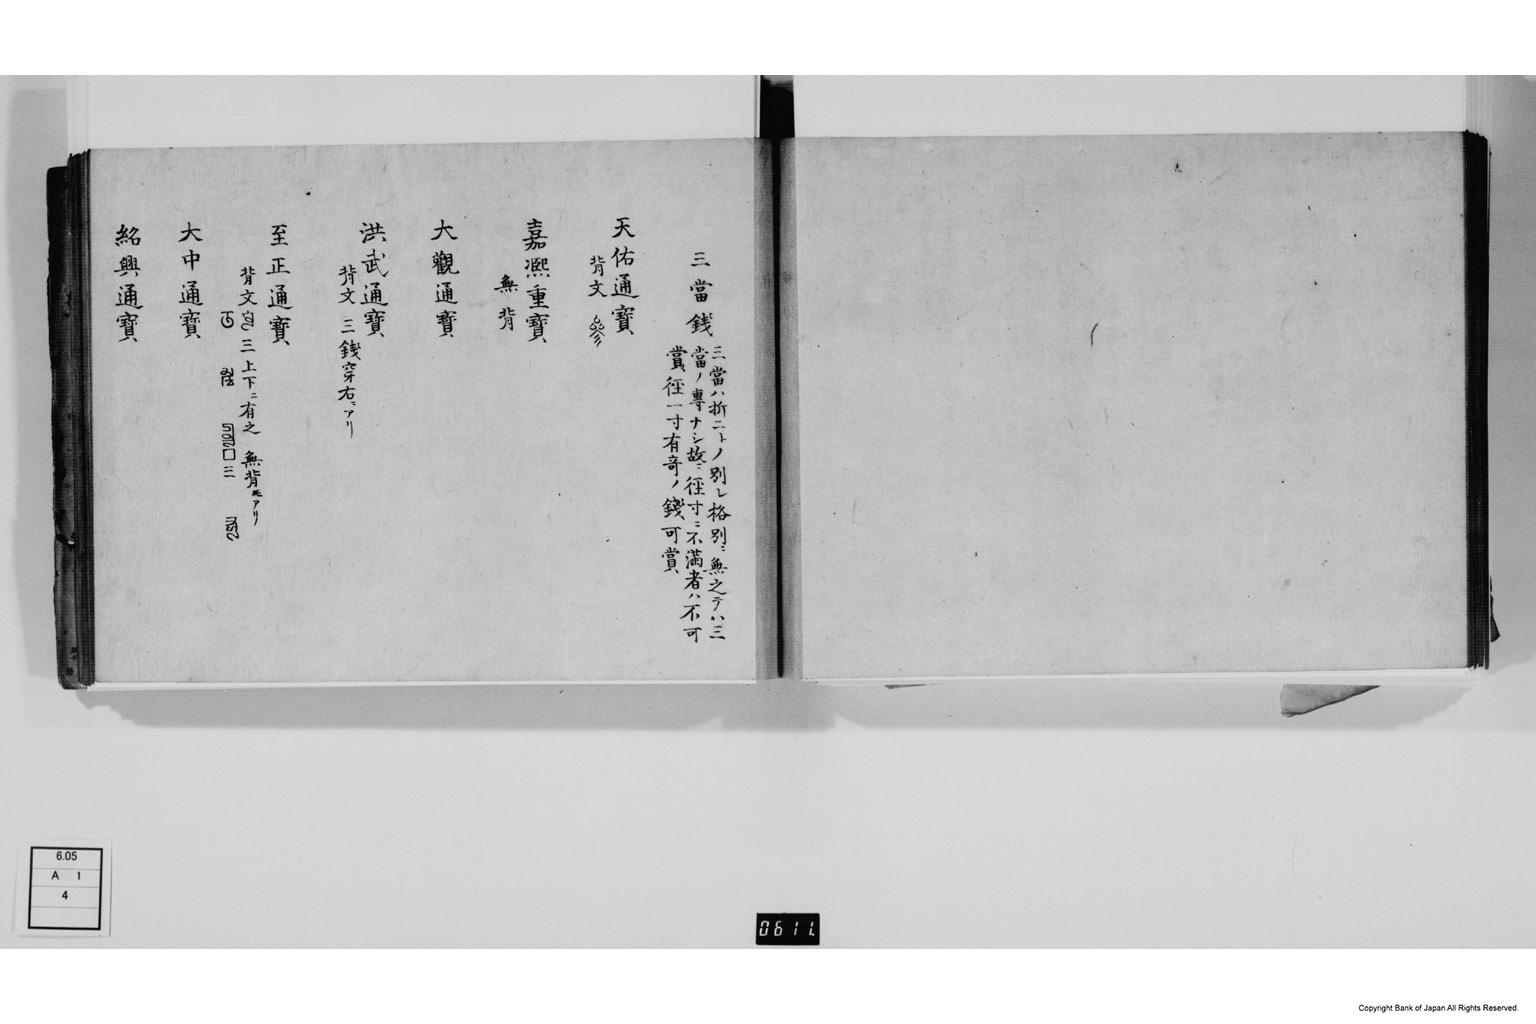 三當錢
三當ハ折二トノ別レ格別ニ無之テハ三
當ノ專ナシ故ニ徑寸ニ不滿者ハ不可
賞徑一寸有奇ノ錢可賞
天佑通寶
背文
嘉凞重寶
無背
大觀通寶
洪武通寶
背文三錢穿右ニアリ
至正通寶
背文 三上下ニ有之 無背モアリ
三
大中通寶
紹興通寶
6.05
A 1
4
0611
Copyright Bank of Japan All Rights Reserved.